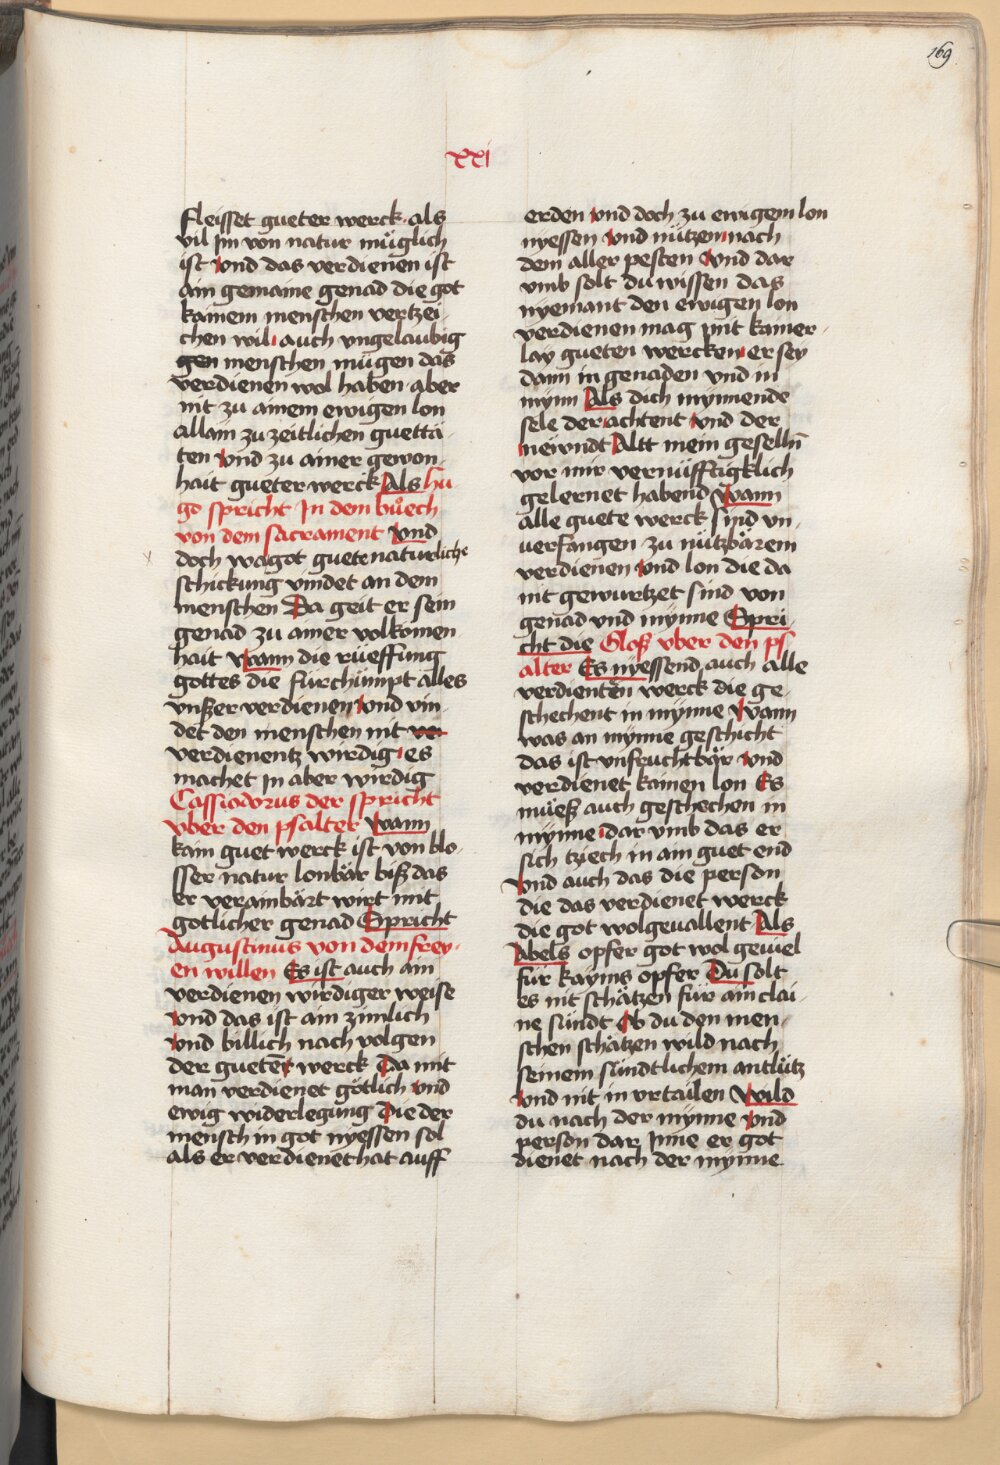 169
xxi
fleisset gueter werck als
vil Im von natur müglich
ist vnd das verdienen ist
ain gemaine genad die got
kainem menschen vertzei
chen wil auch vngelaubig
gen menschen mügen das
verdienen wol haben aber
nit zu ainem ewigen lon
allain zu zeitlichen guettä
ten vnd zu ainer gewon
hait gueter werck Als hu
go spricht In dem buech
von dem sacrament Vnd
doch wa got guete naturliche
schickung vindet an dem
menschen Da geit er sein
genad zu ainer volkomen
hait Wann die rüeffung
gottes die fürchümpt alles
vnßer verdienen vnd vin
det den menschen nit
verdienentz wirdig es
machet In aber wirdig
Cassiodorus der spricht
vber den psalter Wann
kain guet werck ist von blo
sser natur lonbär biß das
er verainbärt wirt mit
gotlicher genad Spricht
Augustinus von dem frey
en willen Es ist auch ain
verdienen wirdiger weise
vnd das ist ain zimlich
vnd billich nach volgen
der gueter werck Da mit
man verdienet götlich vnd
ewig widerlegung Die der
mensch in got nyessen sol
als er verdienet hat auff
erden vnd doch zu ewigem lon
nyessen vnd nützen nach
dem aller pesten Vnd dar
vmb solt du wissen das
nyemant den ewigen lon
verdienen mag mit kainer
lay gueten wercken er sey
dann in genaden vnd in
mynn Als dich mynnende
sele der achtent vnd der
neiwndt Altt mein geselln̄
vor mir vernüfftigklich
gelernet habend Wann
alle guete werck sind vn
uerfangen zu nützbärem
verdienen vnd lon die da
nit gewurtzet sind von
genad vnd mynne Spri
cht die Gloß vber den ps
alter Es nyessend auch alle
verdienten werck die ge
schechent in mynne Wann
was an mynne geschicht
das ist vnfruchtbär vnd
verdienet kainen lon Es
müeß auch geschechen in
mynne dar vmb das er
sich tziech in ain guet end
Vnd auch das die person
die das verdienet werck
die got wolgeuallent Als
Abels opfer got wol geuiel
für kayms opfer Du solt
es nit schätzen für ain clai
ne sündt Ob du den men
schen schätzen wild nach
seinem sündtlichem antlütz
vnd nit in vrtailen Wild
du nach der mynne vnd
person dar Inne er got
dienet nach der mynne